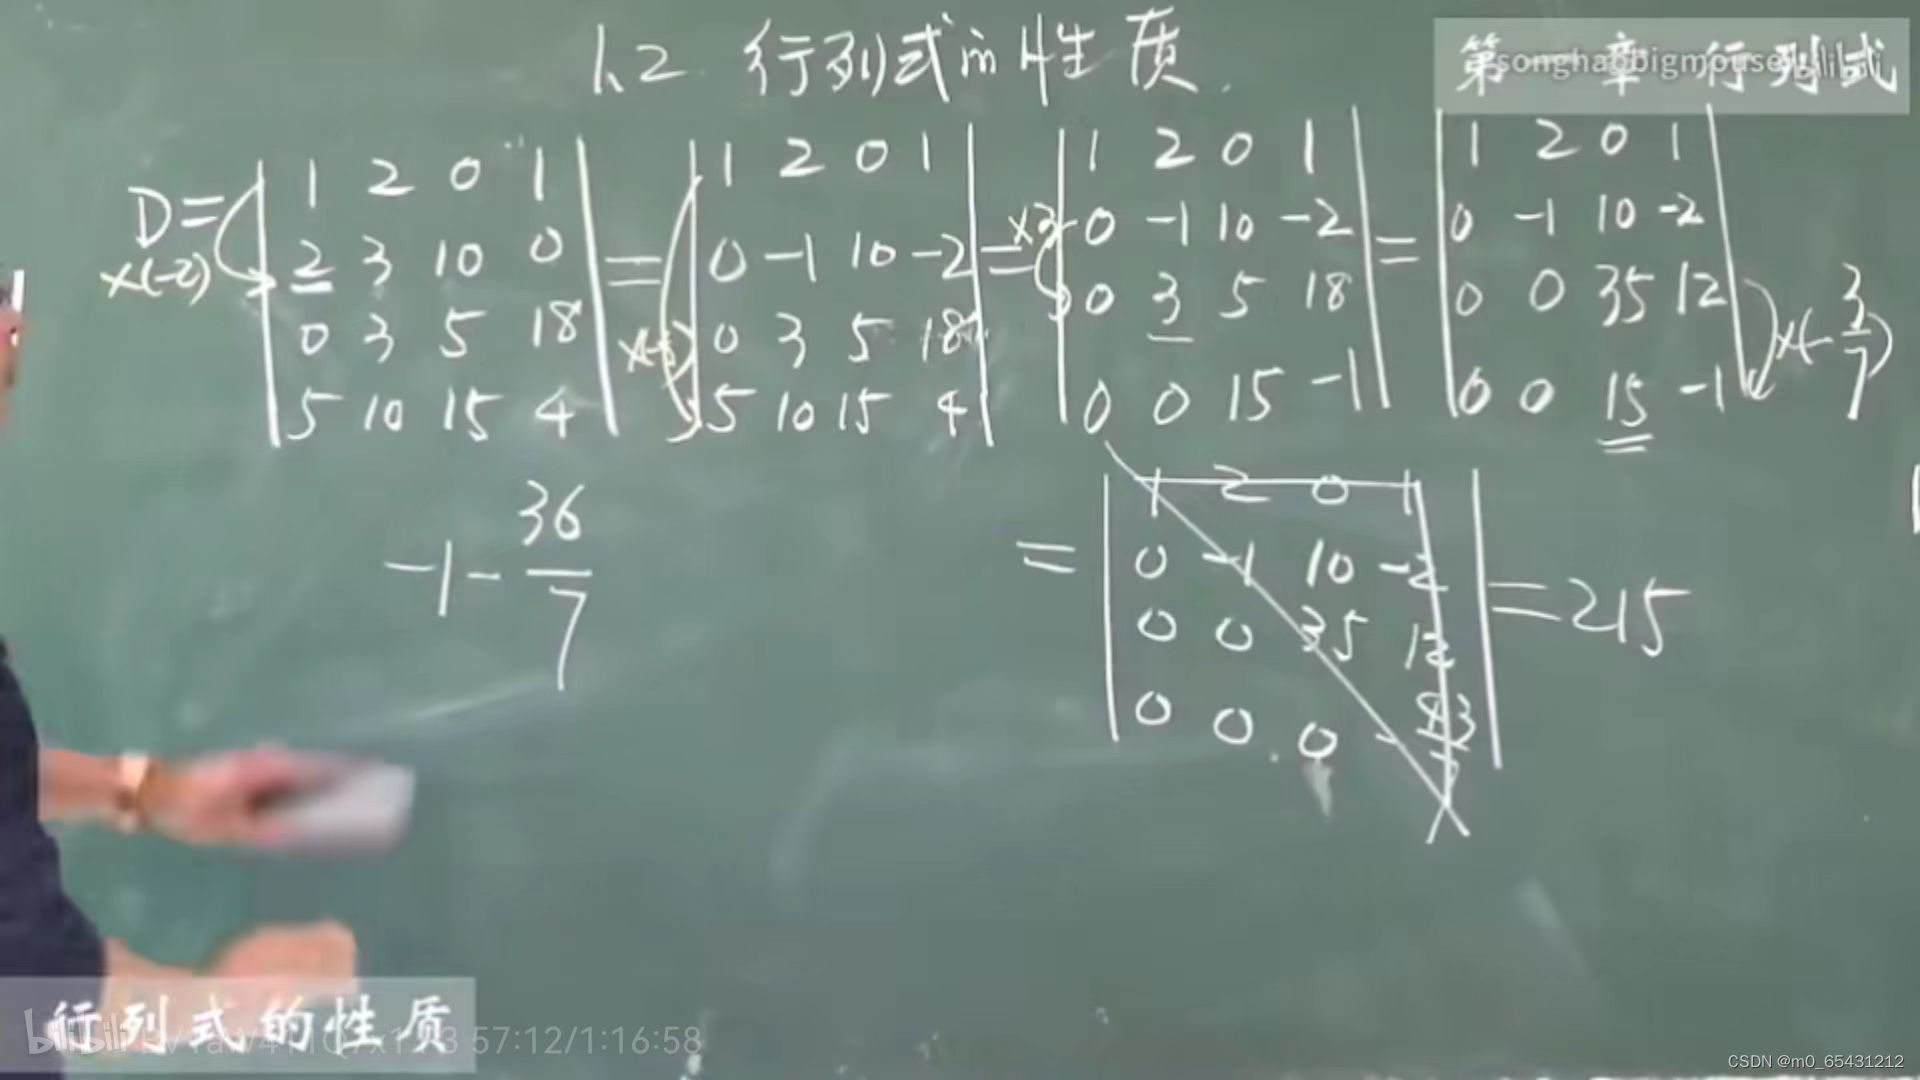 1.2 行列式的性质
第一章 行列式
songhaobigmouse
bilibili
D= | 1 2 0 1 | = | 1 2 0 1 | = | 1 2 0 1 | = | 1 2 0 1 |
×(-2) | 2 3 10 0 | | 0 -1 10 -2 | ×3 | 0 -1 10 -2 | | 0 -1 10 -2 |
| 0 3 5 18 | | 0 3 5 18 | | 0 3 5 18 | | 0 0 35 12 | ×(-3/7)
| 5 10 15 4 | | 5 10 15 4 | | 0 0 15 -1 | | 0 0 15 -1 |
-1-36/7
= | 1 2 0 1 |
| 0 -1 10 -2 | =215
| 0 0 35 12 |
| 0 0 0 -43/7 |
行列式的性质
bilibili 57:12/1:16:58
CSDN @m0_65431212